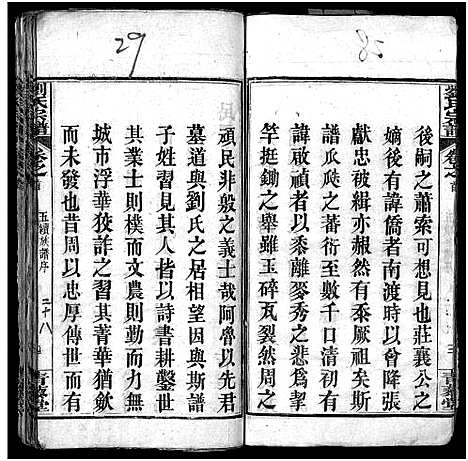 85
後嗣之蕭索可想見也莊襄公之
嫡後有諱僑者南渡時以督降張
獻忠被緝亦赧然有忝厥祖矣斯
譜瓜瓞之蕃衍至數千口清初有
諱啟禎者以黍離麥秀之悲爲挐
竿挺鋤之舉雖玉碎瓦裂然而
劉氏宗譜
卷之首
青藜堂
29
頑民非殷之義士哉阿魯以先君
墓道與劉氏之居相望因與斯譜
子姓習見其人皆詩書耕鑿世
其業士則樸而文農則勤而力無
城市浮華狡詐之習其菁華猶歛
而未發也昔周以忠厚傳世而有
劉氏宗譜
卷之首
五續族譜序
二十八
青藜堂